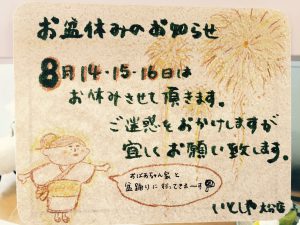 お盆休みのお知らせ
8月14・15・16日は
お休みさせて頂きます。
ご迷惑をおかけしますが
宜しくお願い致します。
おばあちゃん家と
盆踊りに行ってきまーす
いとしや 大谷店